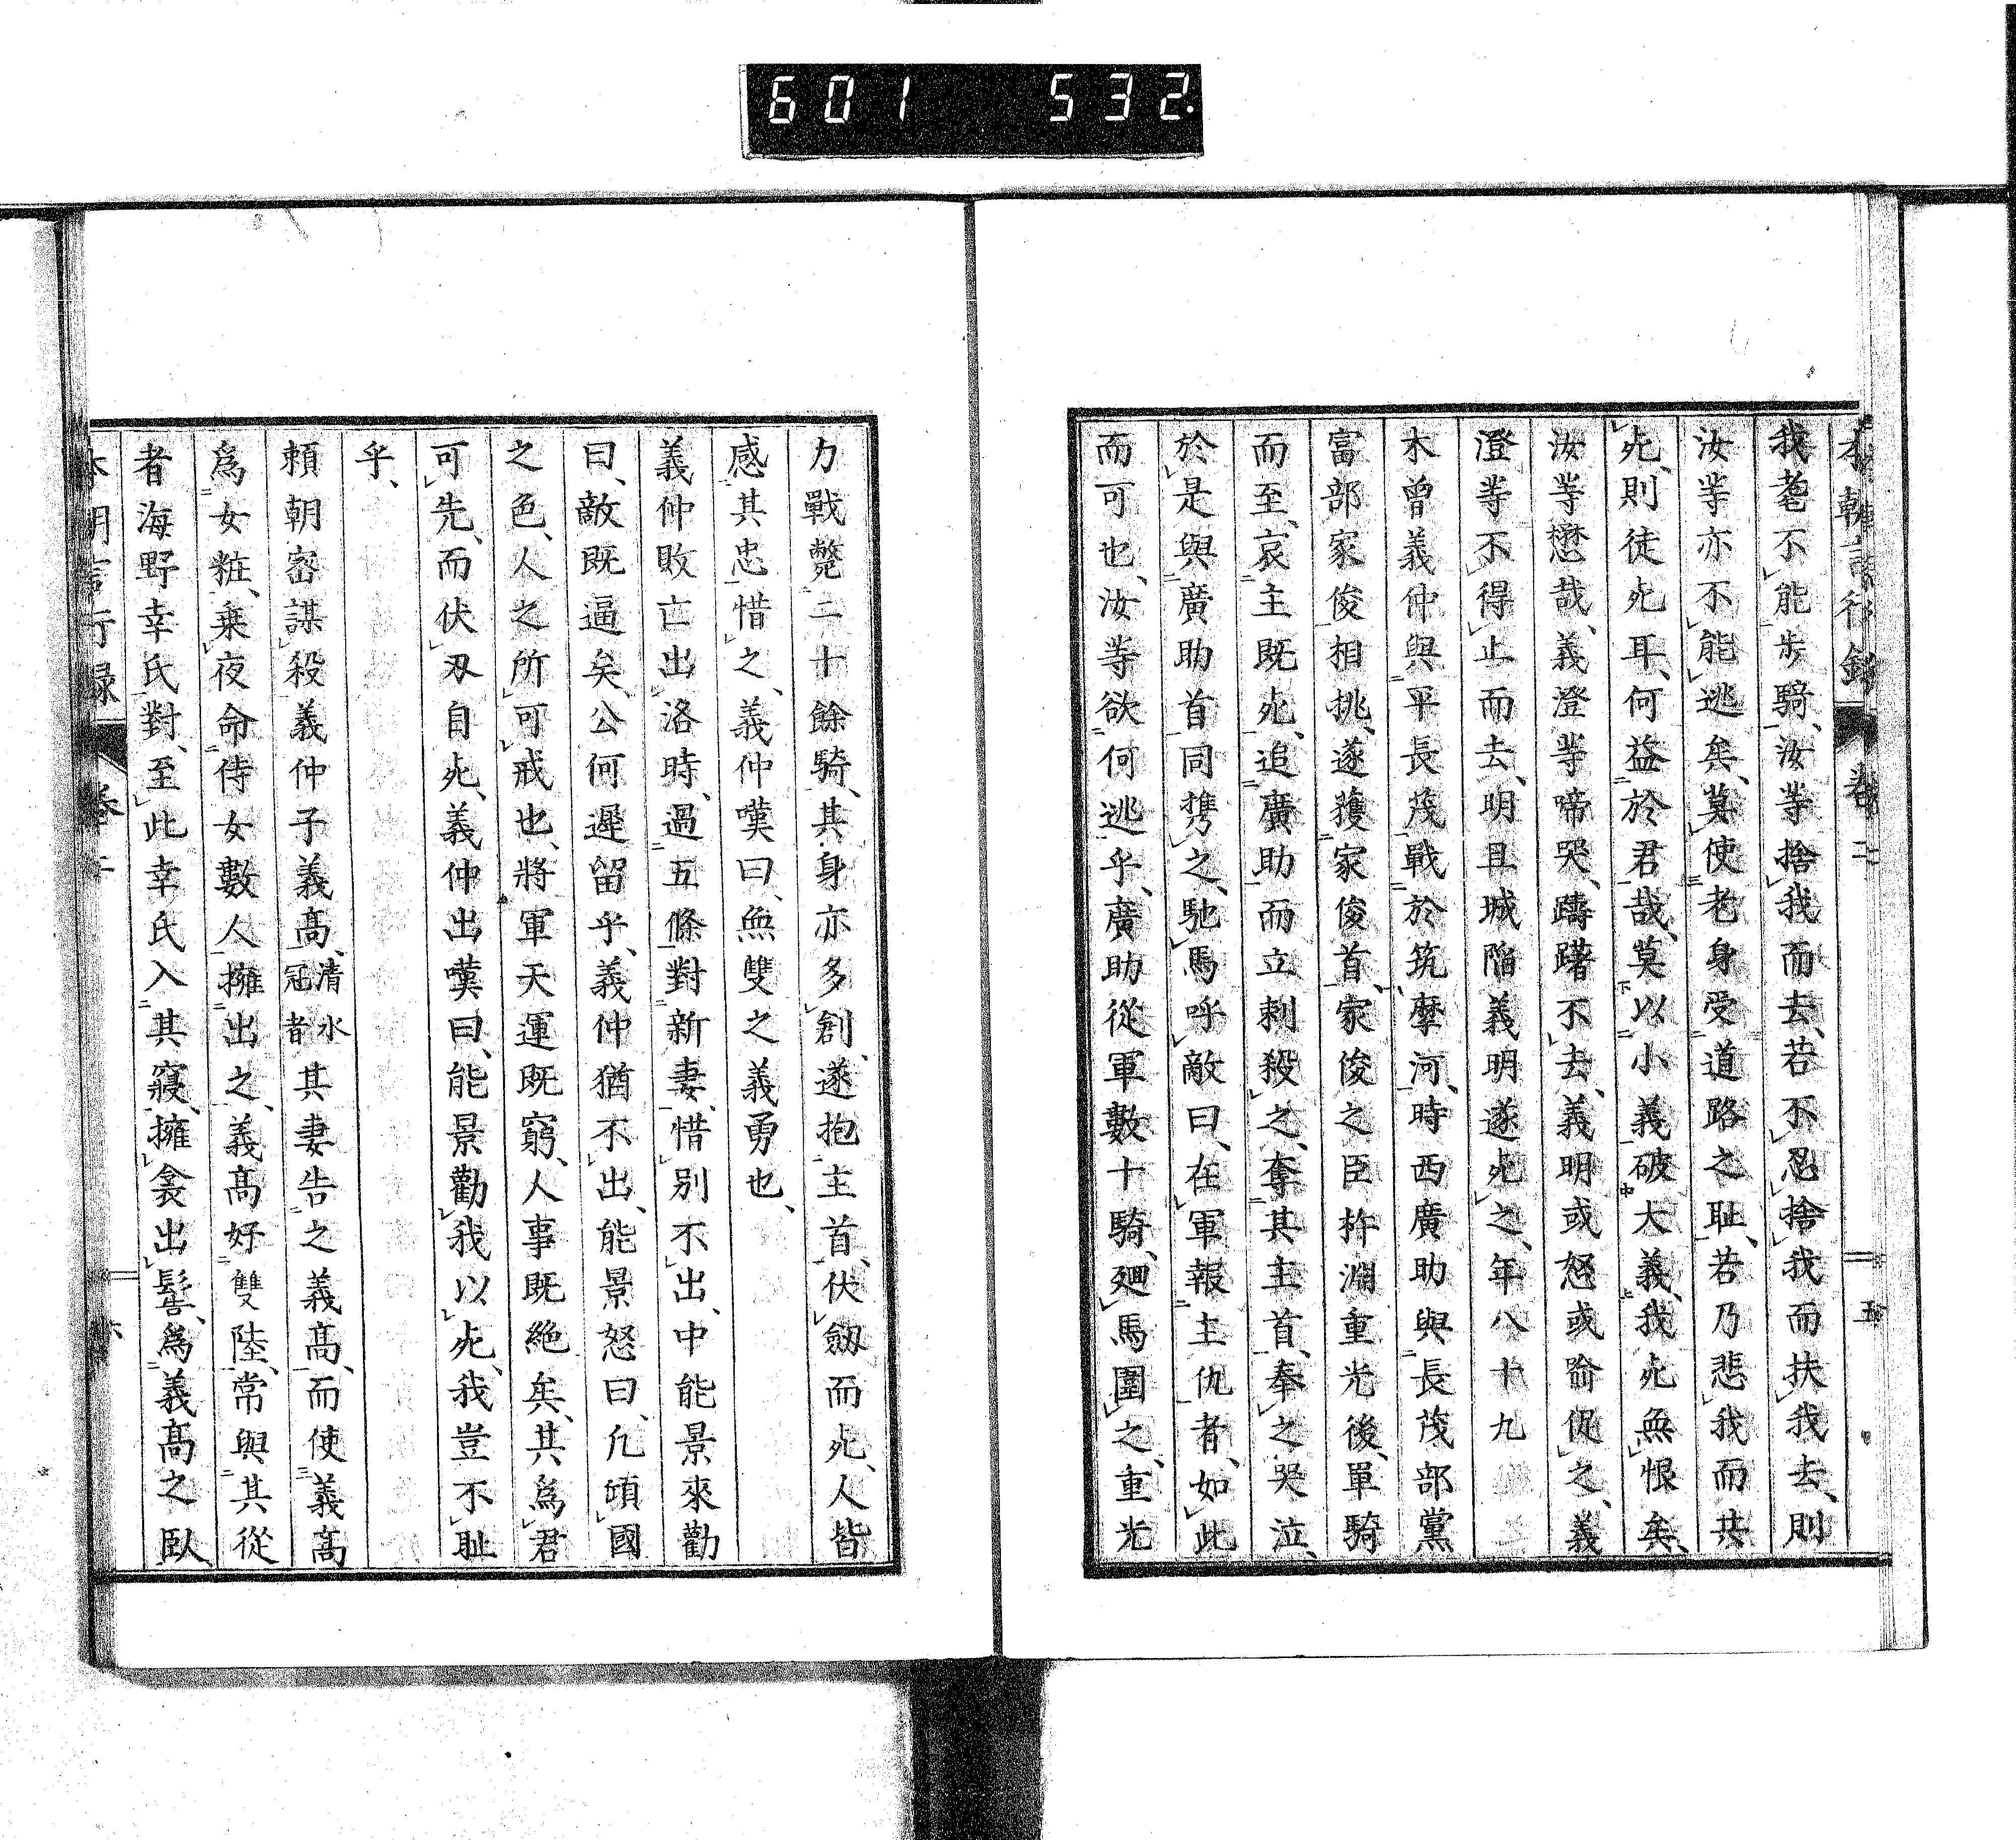 601 532
本朝言行録 卷二 五
我耄不能步騎、汝等捨我而去、若不忍捨我而扶我去、則
汝等亦不能逃矣、莫使老身受道路之耻、若乃悲我而共
死、則徒死耳、何益於君哉、莫以小義破大義、我死無恨矣、
汝等懋哉、義澄等啼哭、躊躇不去、義明或怒或喩促之、義
澄等不得止而去、明旦城陷義明遂死之、年八十九
木曾義仲與平長茂戰於筑摩河、時西廣助與長茂部黨
富部家俊相挑、遂獲家俊首、家俊之臣杵淵重光後、單騎
而至、哀主既死、追廣助而立刺殺之、奪其主首、奉之哭泣、
於是與廣助首同携之、馳馬呼敵曰、在軍報主仇者、如此
而可也、汝等欲何逃乎、廣助從軍數十騎、廻馬圍之、重光
力戰斃二十餘騎、其身亦多創、遂抱主首、伏劔而死、人皆
感其忠惜之、義仲嘆曰、無雙之義勇也、
義仲敗亡出洛時、過五條對新妻、惜別不出、中能景來勸
曰、敵既逼矣、公何遲留乎、義仲猶不出、能景怒曰、凢頃國
之色、人之所可戒也、將軍天運既窮、人事既絶矣、其爲君
可先、而伏刄自死、義仲出嘆曰、能景勸我以死、我豈不耻
乎、
頼朝密謀殺義仲子義髙、清水冠者其妻告之義髙、而使義髙
爲女粧、乗夜命侍女數人擁出之、義髙好雙陸、常與其從
者海野幸氏對、至此幸氏入其寢、擁衾出髻、爲義髙之臥
本朝言行録 卷二 六